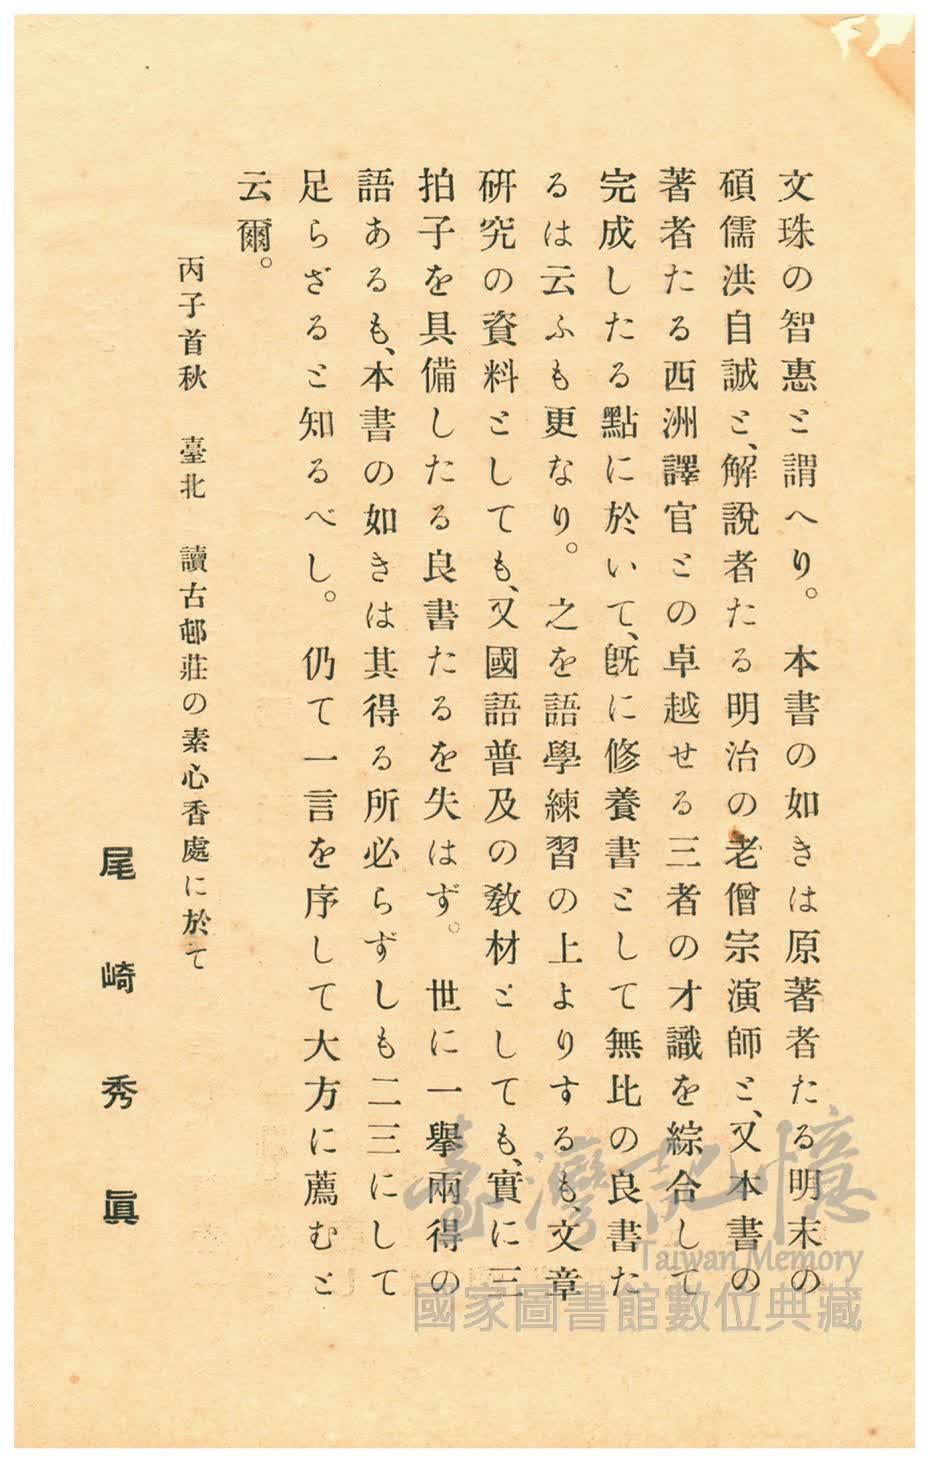 文珠の智惠と謂へり。 本書の如きは原著者たる明末の
碩儒洪自誠と、解說者たる明治の老僧宗演師と、又本書の
著者たる西洲譯官との卓越せる三者の才識を綜合して
完成したる點に於いて、既に修養書として無比の良書た
るは云ふも更なり。 之を語學練習の上よりするも、文章
研究の資料としても、又國語普及の教材としても、實に三
拍子を具備したる良書たるを失はず。 世に一擧兩得の
語あるも、本書の如きは其得る所必らずしも二三にして
足らざると知るべし。 仍て一言を序して大方に薦むと
云爾。
丙子首秋 臺北 讀古邨莊の素心香處に於て
尾崎秀眞
臺灣記憶
Taiwan Memory
國家圖書館數位典藏